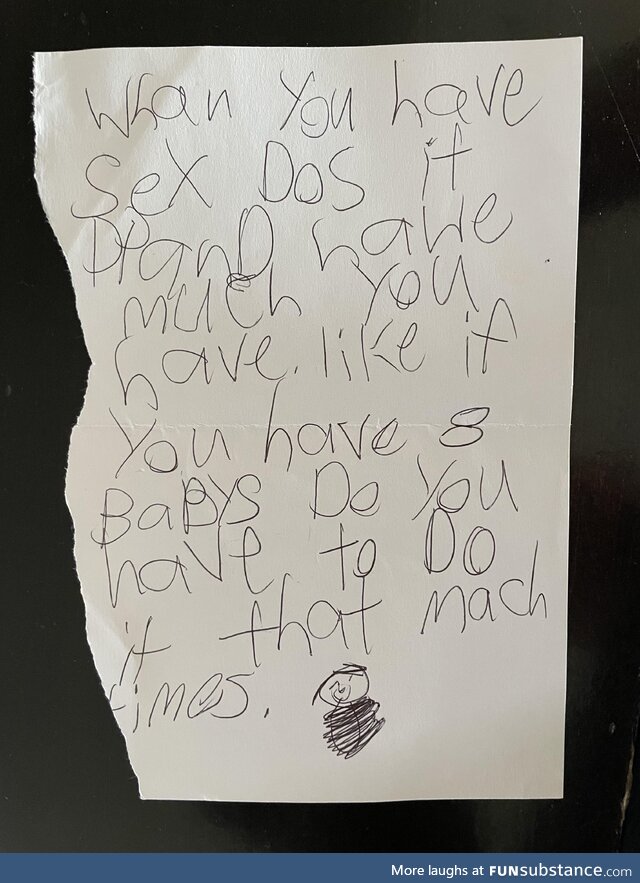 Whan You have
Sex Dos it
DPanD hawe
much You
have. like if
You have 8
BaBys Do You
have to Do
it that mach
times.
More laughs at FUNsubstance.com